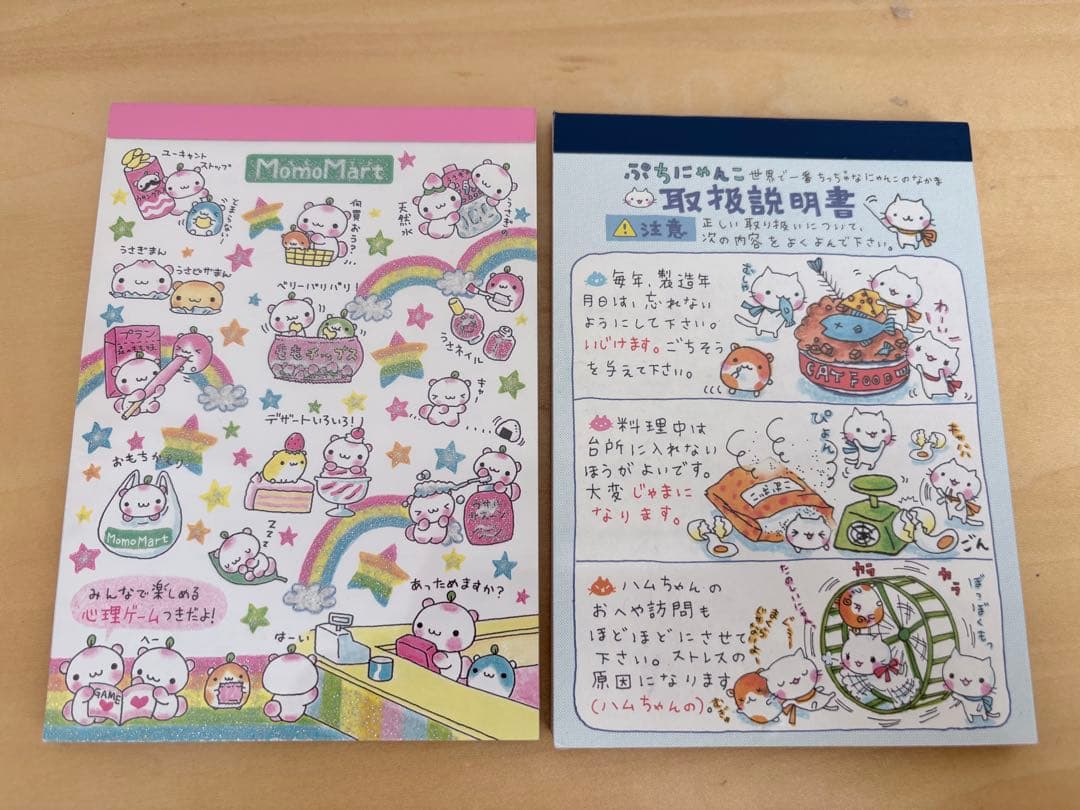 ユーキャント
ストップ
MomoMart
でまらない
何買おう?...
天然水
うさぎまん
うさピザまん
ベリーパリパリ!
プラン
うさネイル
桃桃チップス
キャ
デザートいろいろ!
おもちかえり
MomoMart
ZZZZ
あっためますか?
みんなで楽しめる
心理ゲームつきだよ!
へー
はーい
GAME
ぷちにゃんこ 世界で一番ちっちゃなにゃんこのなかま
取扱説明書
注意
正しい取り扱いについて、
次の内容をよくよんで下さい。
毎年、製造年
月日は、忘れない
ようにして下さい。
いじけます。ごちそう
を与えて下さい。
むしゃ
わーい
CAT FOOD
料理中は
台所に入れない
ほうがよいです。
大変じゃまに
なります。
ぴょん
こむぎこ
キャハハ
ごん
ハムちゃんの
おへや訪問も
ほどほどにさせて
下さい。ストレスの
原因になります
(ハムちゃんの)。
たのしいにゃん
カラ
カラ
ぼくもっ